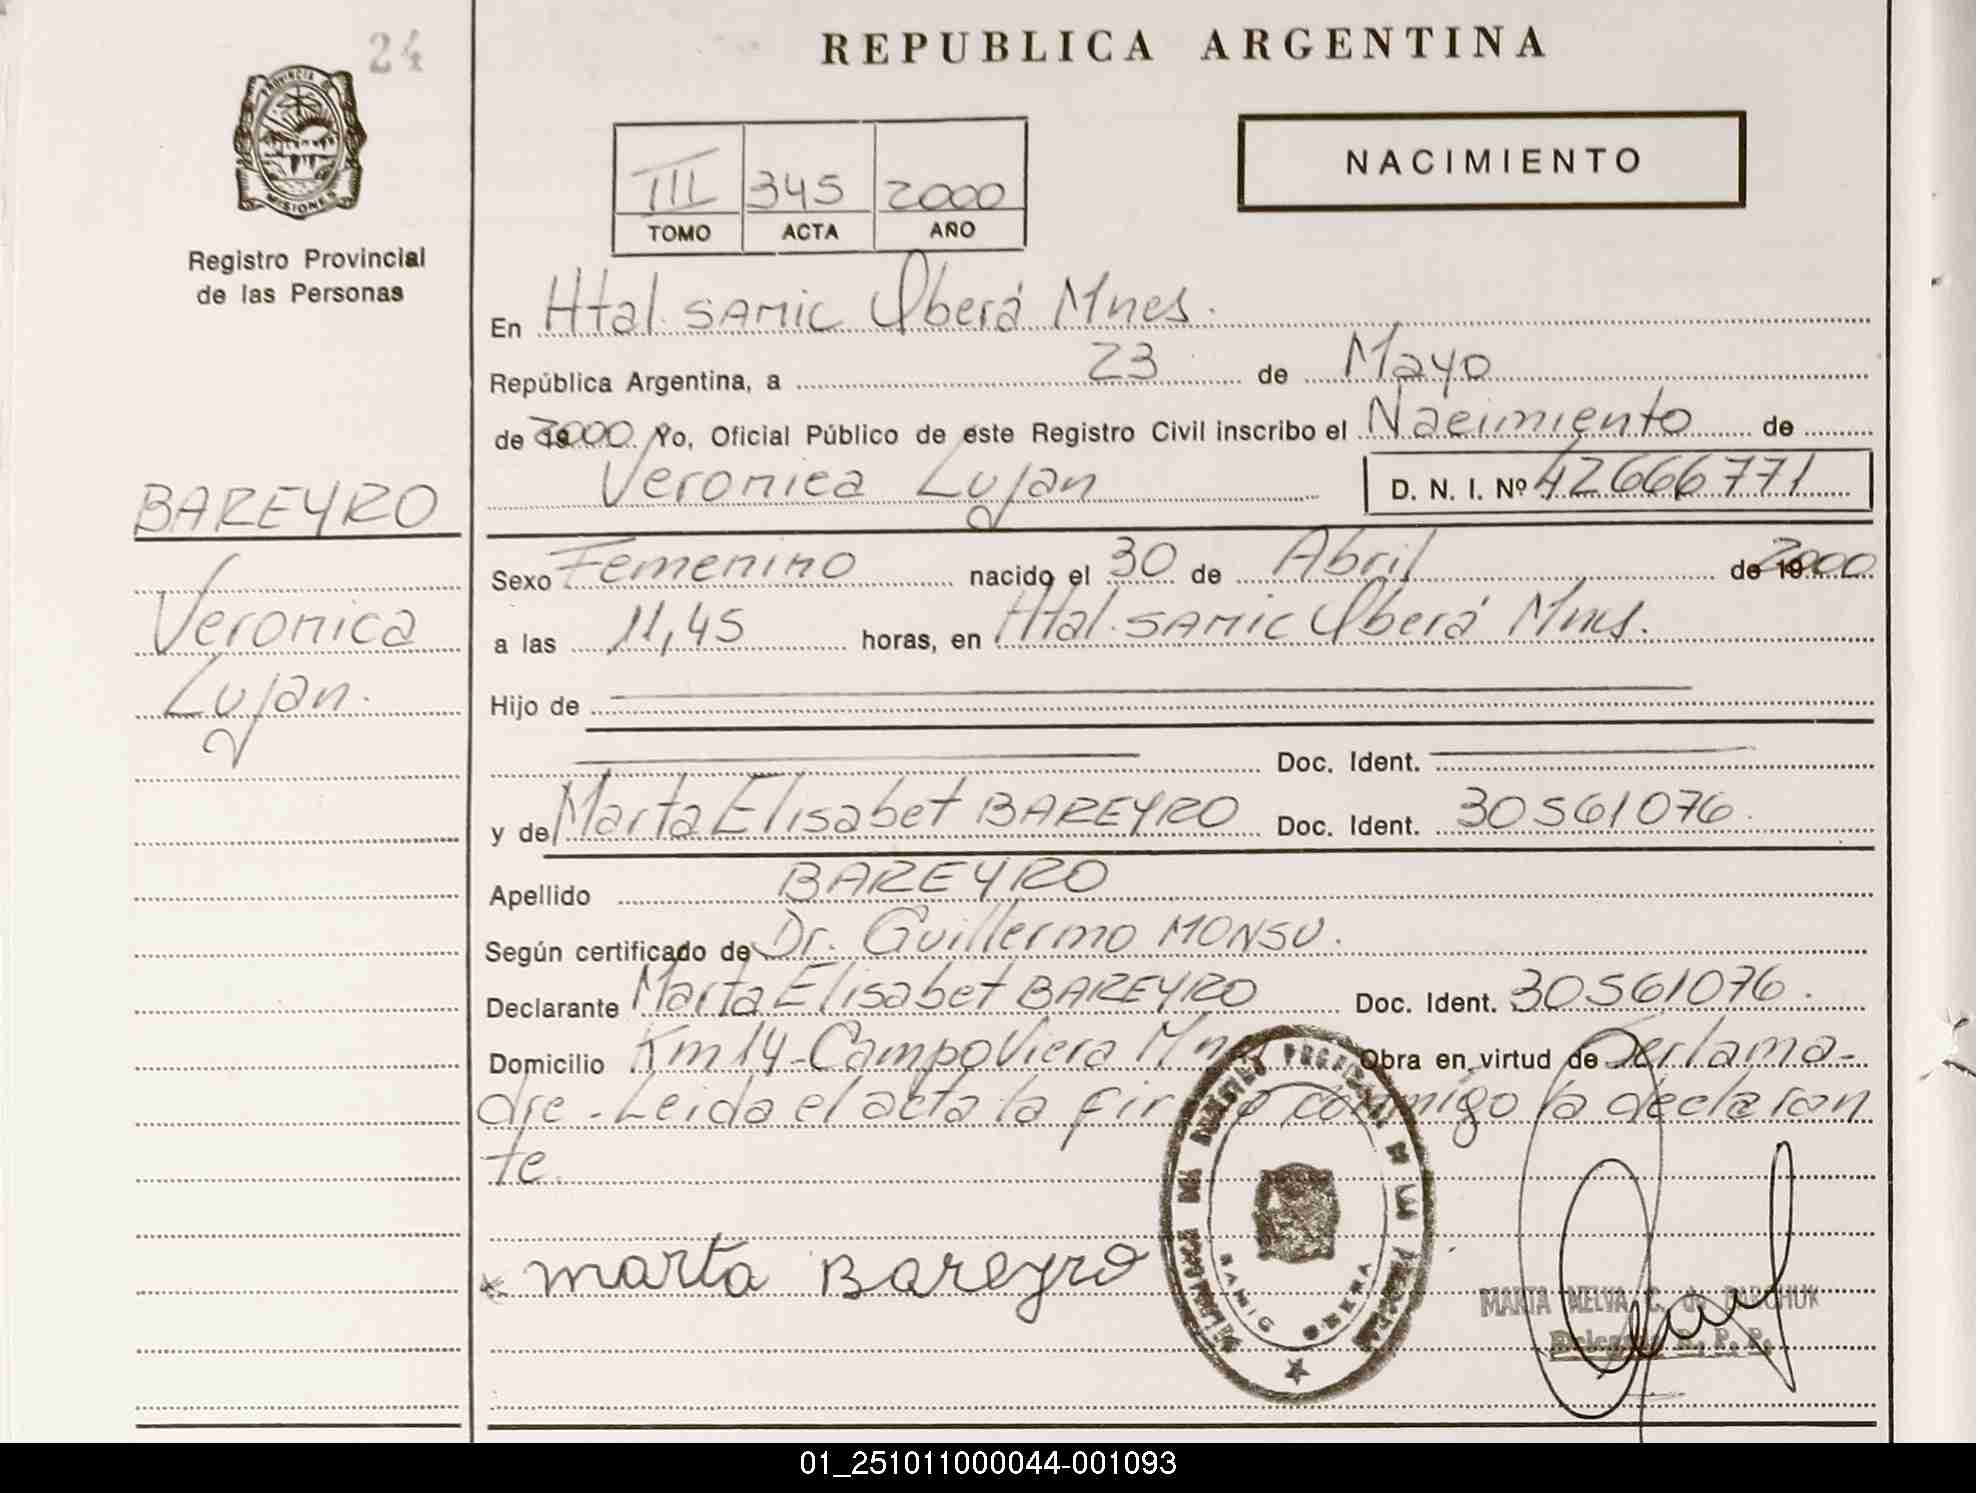 24
REPUBLICA ARGENTINA
PROVINCIA DE
MISIONES
Registro Provincial
de las Personas
NACIMIENTO
III 345 2000
TOMO ACTA AÑO
En Htal. SAMIC Oberá Mnes.
República Argentina, a 23 de Mayo
de 2000 Yo, Oficial Público de este Registro Civil inscribo el Nacimiento de
Veronica Lujan D. N. I. Nº 42666771
BAREYRO
Veronica
Lujan.
Sexo Femenino nacido el 30 de Abril de 2000
a las 11,45 horas, en Htal. SAMIC Oberá Mnes.
Hijo de
Doc. Ident.
y de Marta Elisabet BAREYRO Doc. Ident. 30561076.
Apellido BAREYRO
Según certificado de Dr. Guillermo MONSU.
Declarante Marta Elisabet BAREYRO Doc. Ident. 30561076.
Domicilio Km 14 - Campo Viera Mnes Obra en virtud de Ser la ma-
dre - Leida el acta la firma conmigo la declaran
te.
marta Bareyro
SAMIC OBERA
MARTA NELVA C. de
Delegada R. P. P.
01_251011000044-001093